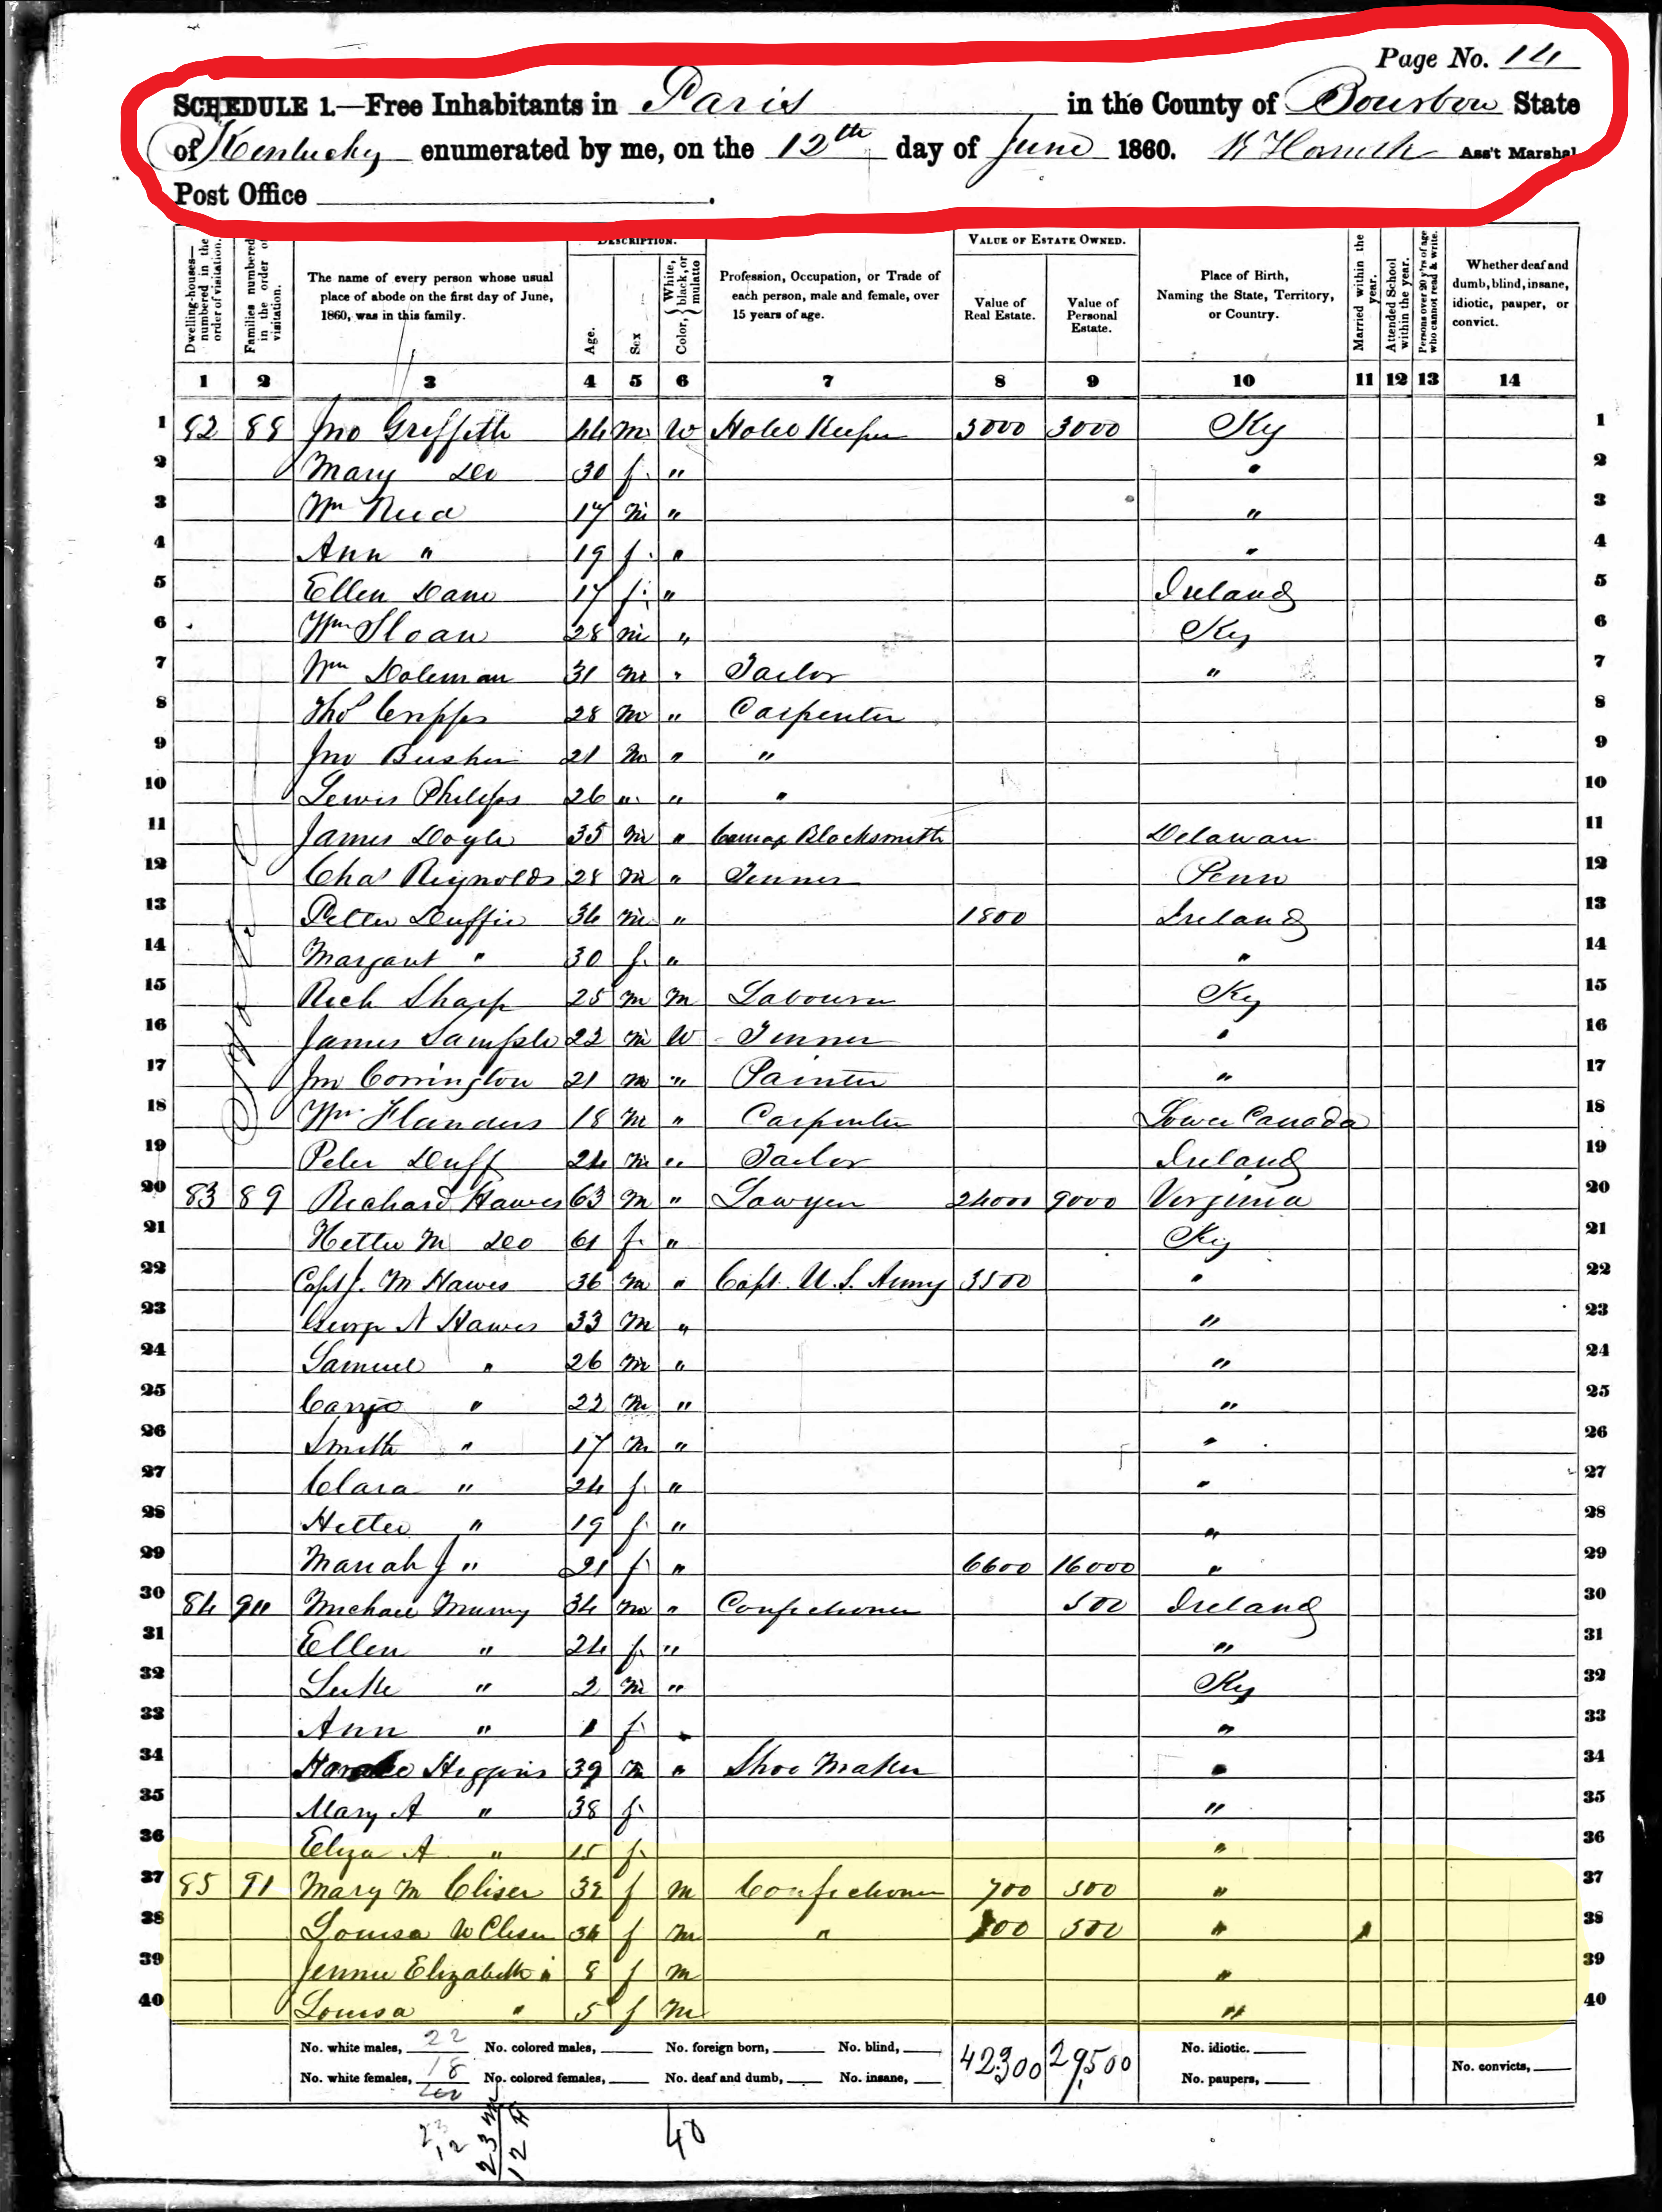 Page No. 14
SCHEDULE 1.—Free Inhabitants in Paris in the County of Bourbon State
of Kentucky enumerated by me, on the 12th day of June 1860. Ass't Marshal
Post Office .
DESCRIPTION. VALUE OF ESTATE OWNED.
Dwelling-houses— numbered in the order of visitation. Families numbered in the order of visitation. The name of every person whose usual place of abode on the first day of June, 1860, was in this family. Age. Sex Color, White, black, or mulatto Profession, Occupation, or Trade of each person, male and female, over 15 years of age. Value of Real Estate. Value of Personal Estate. Place of Birth, Naming the State, Territory, or Country. Married within the year. Attended School within the year. Persons over 20 y'rs of age who cannot read & write. Whether deaf and dumb, blind, insane, idiotic, pauper, or convict.
1 2 3 4 5 6 7 8 9 10 11 12 13 14
1 82 88 Jno Griffith 44 m W Hotel Keeper 3000 3000 Ky 1
2 Mary Do 30 f " " 2
3 Wm 17 m " " 3
4 Ann " 19 f " " 4
5 Ellen 17 f " Ireland 5
6 Wm Sloan 28 m " Ky 6
7 Wm Doleman 31 m " Tailor " 7
8 Thos Cripps 28 m " Carpenter 8
9 Jno 21 m " " 9
10 Lewis Philips 26 " " " 10
11 James Doyle 35 m " Blacksmith Delaware 11
12 Chas Reynolds 28 m " Tinner Penn 12
13 Peter Duffie 34 m " 1800 Ireland 13
14 Margaret " 30 f " " 14
15 Rich Sharp 25 m M Labourer Ky 15
16 James Sample 22 m W Tinner " 16
17 Jno Corrington 21 m " Painter " 17
18 Wm Flanders 18 m " Carpenter Lower Canada 18
19 Peter Duff 24 m " Tailor Ireland 19
20 83 89 Richard Hawes 63 m " Lawyer 24000 9000 Virginia 20
21 Hettie M Do 61 f " Ky 21
22 Capt J. M Hawes 36 m " Capt. U. S. Army 3500 " 22
23 George N Hawes 33 m " " 23
24 Samuel " 26 m " " 24
25 " 22 m " " 25
26 Smith " 17 m " " 26
27 Clara " 24 f " " 27
28 Hettie " 19 f " " 28
29 Mariah J " 21 f " 6600 16000 " 29
30 84 90 Michael Murry 34 m " Confectioner 500 Ireland 30
31 Ellen " 24 f " " 31
32 Luke " 2 m " Ky 32
33 Ann " 1 f " " 33
34 Higgins 39 m " Shoe Maker " 34
35 Mary A " 38 f " 35
36 Eliza A " 15 f " 36
37 85 91 Mary M Cliser 32 f m Confectioner 700 500 " 37
38 Louisa W Cliser 34 f m " 500 " 1 38
39 Jennie Elizabeth " 8 f m " 39
40 Louisa " 5 f m " 40
No. white males, 22 No. colored males, No. foreign born, No. blind, 42300 29500 No. idiotic.
No. white females, 18 No. colored females, No. deaf and dumb, No. insane, No. paupers, No. convicts,
40
23 12
23 m
12 F